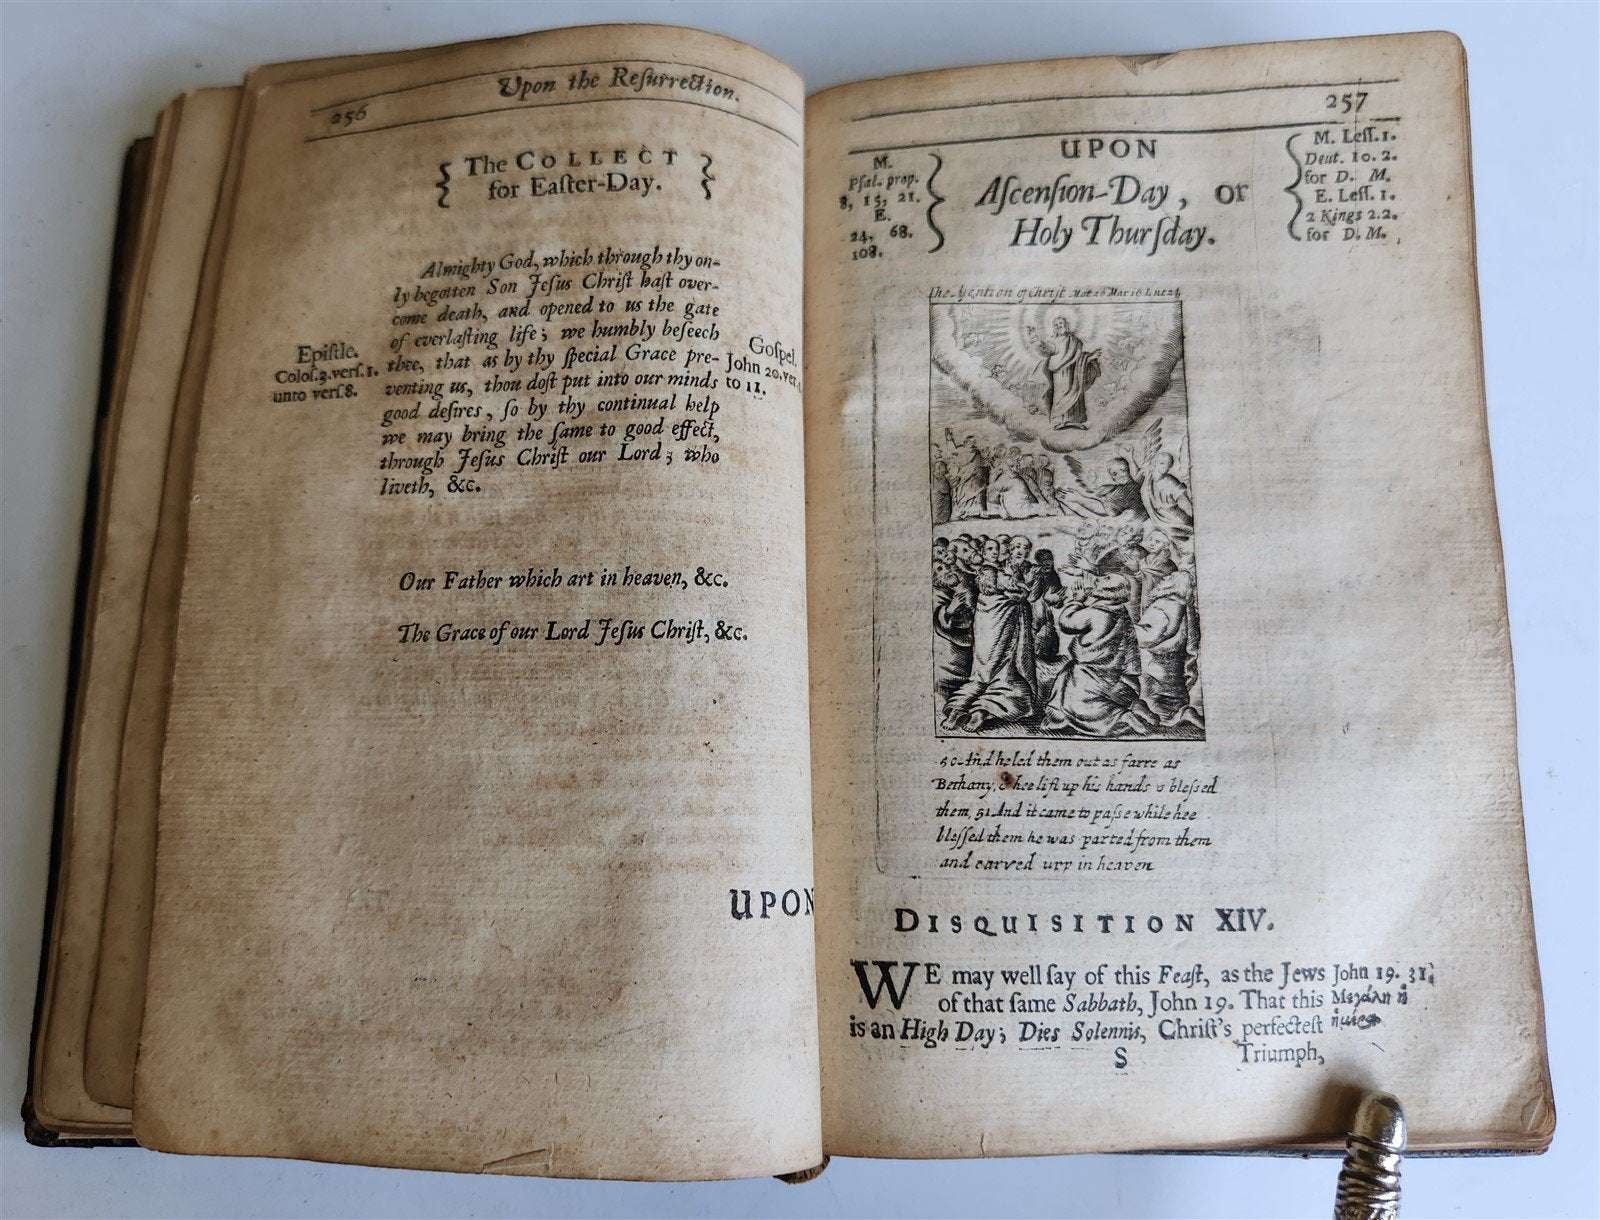 256
Upon the Reſurrection.
The COLLECT
for Eaſter-Day.
Almighty God, which through thy on-
ly begotten Son Jeſus Chriſt haſt over-
come death, and opened to us the gate
of everlaſting life; we humbly beſeech
thee, that as by thy ſpecial Grace pre-
venting us, thou doſt put into our minds
good deſires, ſo by thy continual help
we may bring the ſame to good effect,
through Jeſus Chriſt our Lord; who
liveth, &c.
Epiſtle.
Coloſ.3.verſ.1.
unto verſ.8.
Goſpel.
John 20.ver.
to 11.
Our Father which art in heaven, &c.
The Grace of our Lord Jeſus Chriſt, &c.
UPON
257
M.
Pſal. prop.
8, 15, 21.
E.
24, 68.
108.
UPON
Aſcenſion-Day, or
Holy Thurſday.
M. Leſſ. 1.
Deut. 10. 2.
for D. M.
E. Leſſ. 1.
2 Kings 2.2.
for D. M.
The of Chriſt
50 And he led them out as farre as
Bethany, & hee lift up his hands & bleſsed
them, 51 And it came to paſse while hee
bleſſed them he was parted from them
and carved upp in heaven
DISQUISITION XIV.
WE may well ſay of this Feaſt, as the Jews
of that ſame Sabbath, John 19. That this
is an High Day; Dies Solennis, Chriſt's perfecteſt
John 19. 31.
Μεγάλη ἡ
S
Triumph,